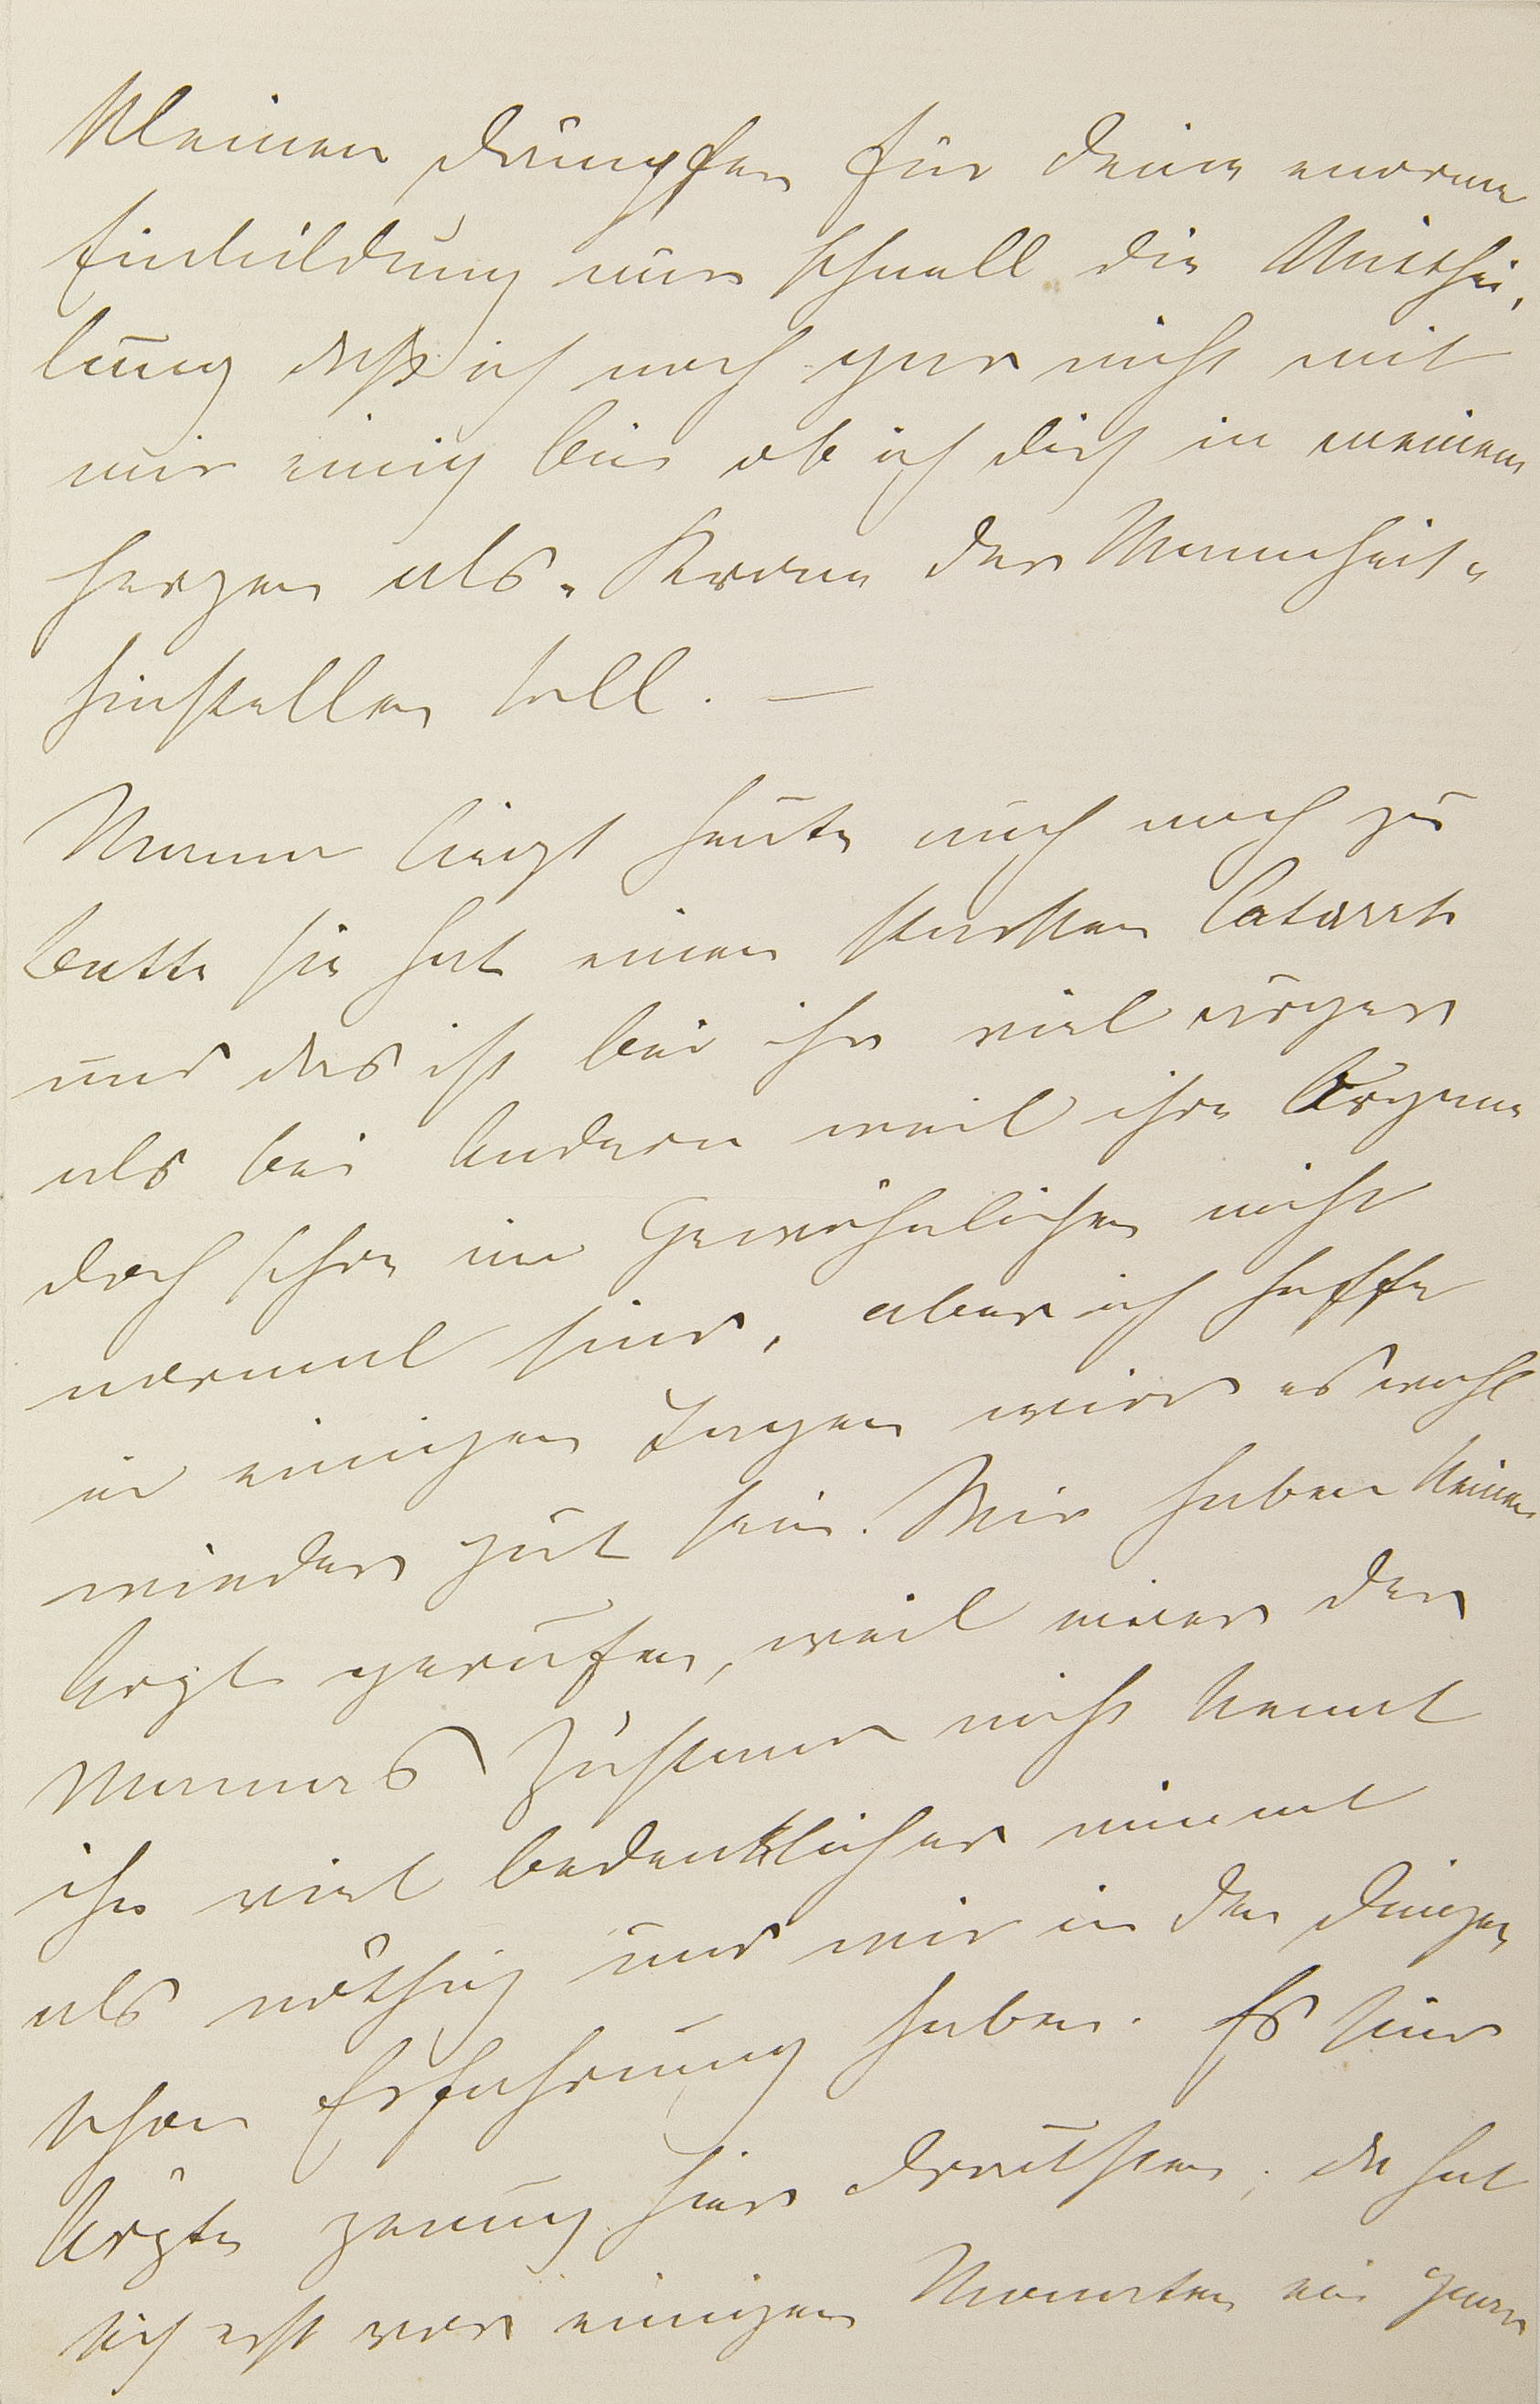 kleinen Dämpfer für deine enorme
Einbildung nur schnell die Mitthei„
lung daß ich noch gar nicht mit
mir einig bin ob ich dich in meinem
Herzen als „Krone der Mannheit„
hinstellen soll. —
Mama liegt heute auch noch zu
Bette sie hat einen starken Catarrh
und das ist bei ihr viel ärger
als bei Andern weil ihre Organe
doch schon im Gewöhnlichen nicht
normal sind, aber ich hoffe
in einigen Tagen wird es wohl
wieder gut sein. Wir haben keinen
Arzt gerufen, weil einer der
Mamas Zustand nicht kennt
ihn viel bedenklicher nimmt
als nöthig und wir in den Dingen
schon Erfahrung haben. Es sind
Ärzte genug hier draußen, da hat
sich erst vor einigen Monaten ein ganz